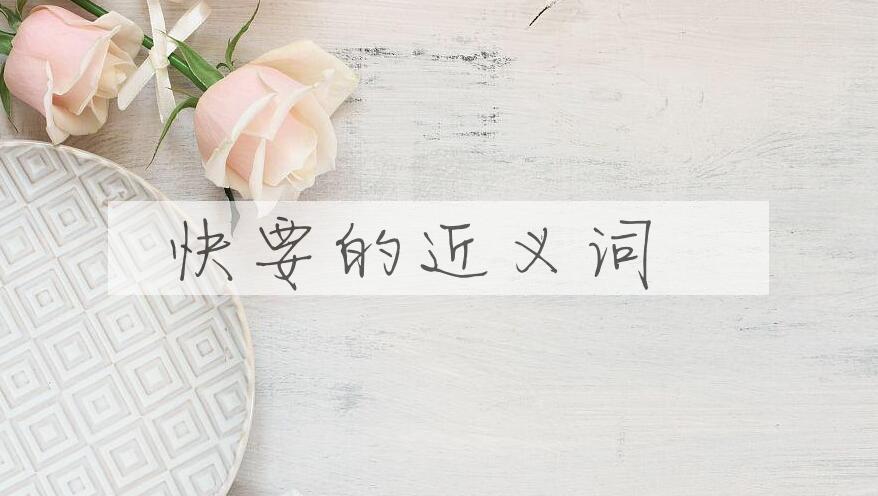 快要的近义词